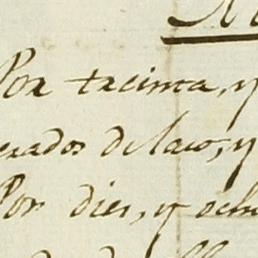 Por treinta, y
erados de laco, y
Por dies, y och